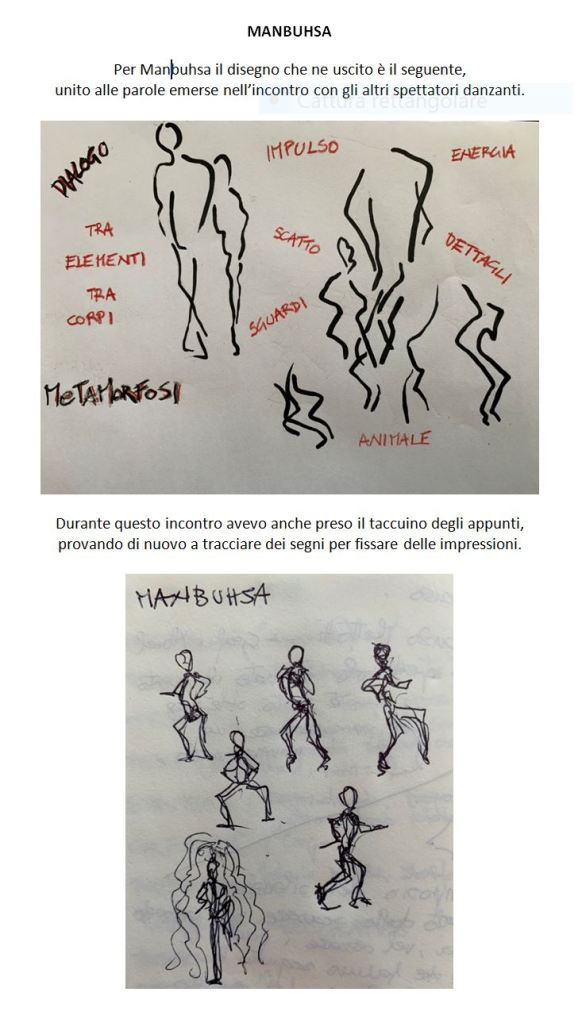 MANBUHSA
Per Manbuhsa il disegno che ne uscito è il seguente,
unito alle parole emerse nell'incontro con gli altri spettatori danzanti.
Cattura rettangolare
DIALOGO
TRA
ELEMENTI
TRA
CORPI
METAMORFOSI
IMPULSO
ENERGIA
SCATTO
DETTAGLI
SGUARDI
ANIMALE
Durante questo incontro avevo anche preso il taccuino degli appunti,
provando di nuovo a tracciare dei segni per fissare delle impressioni.
MANBUHSA